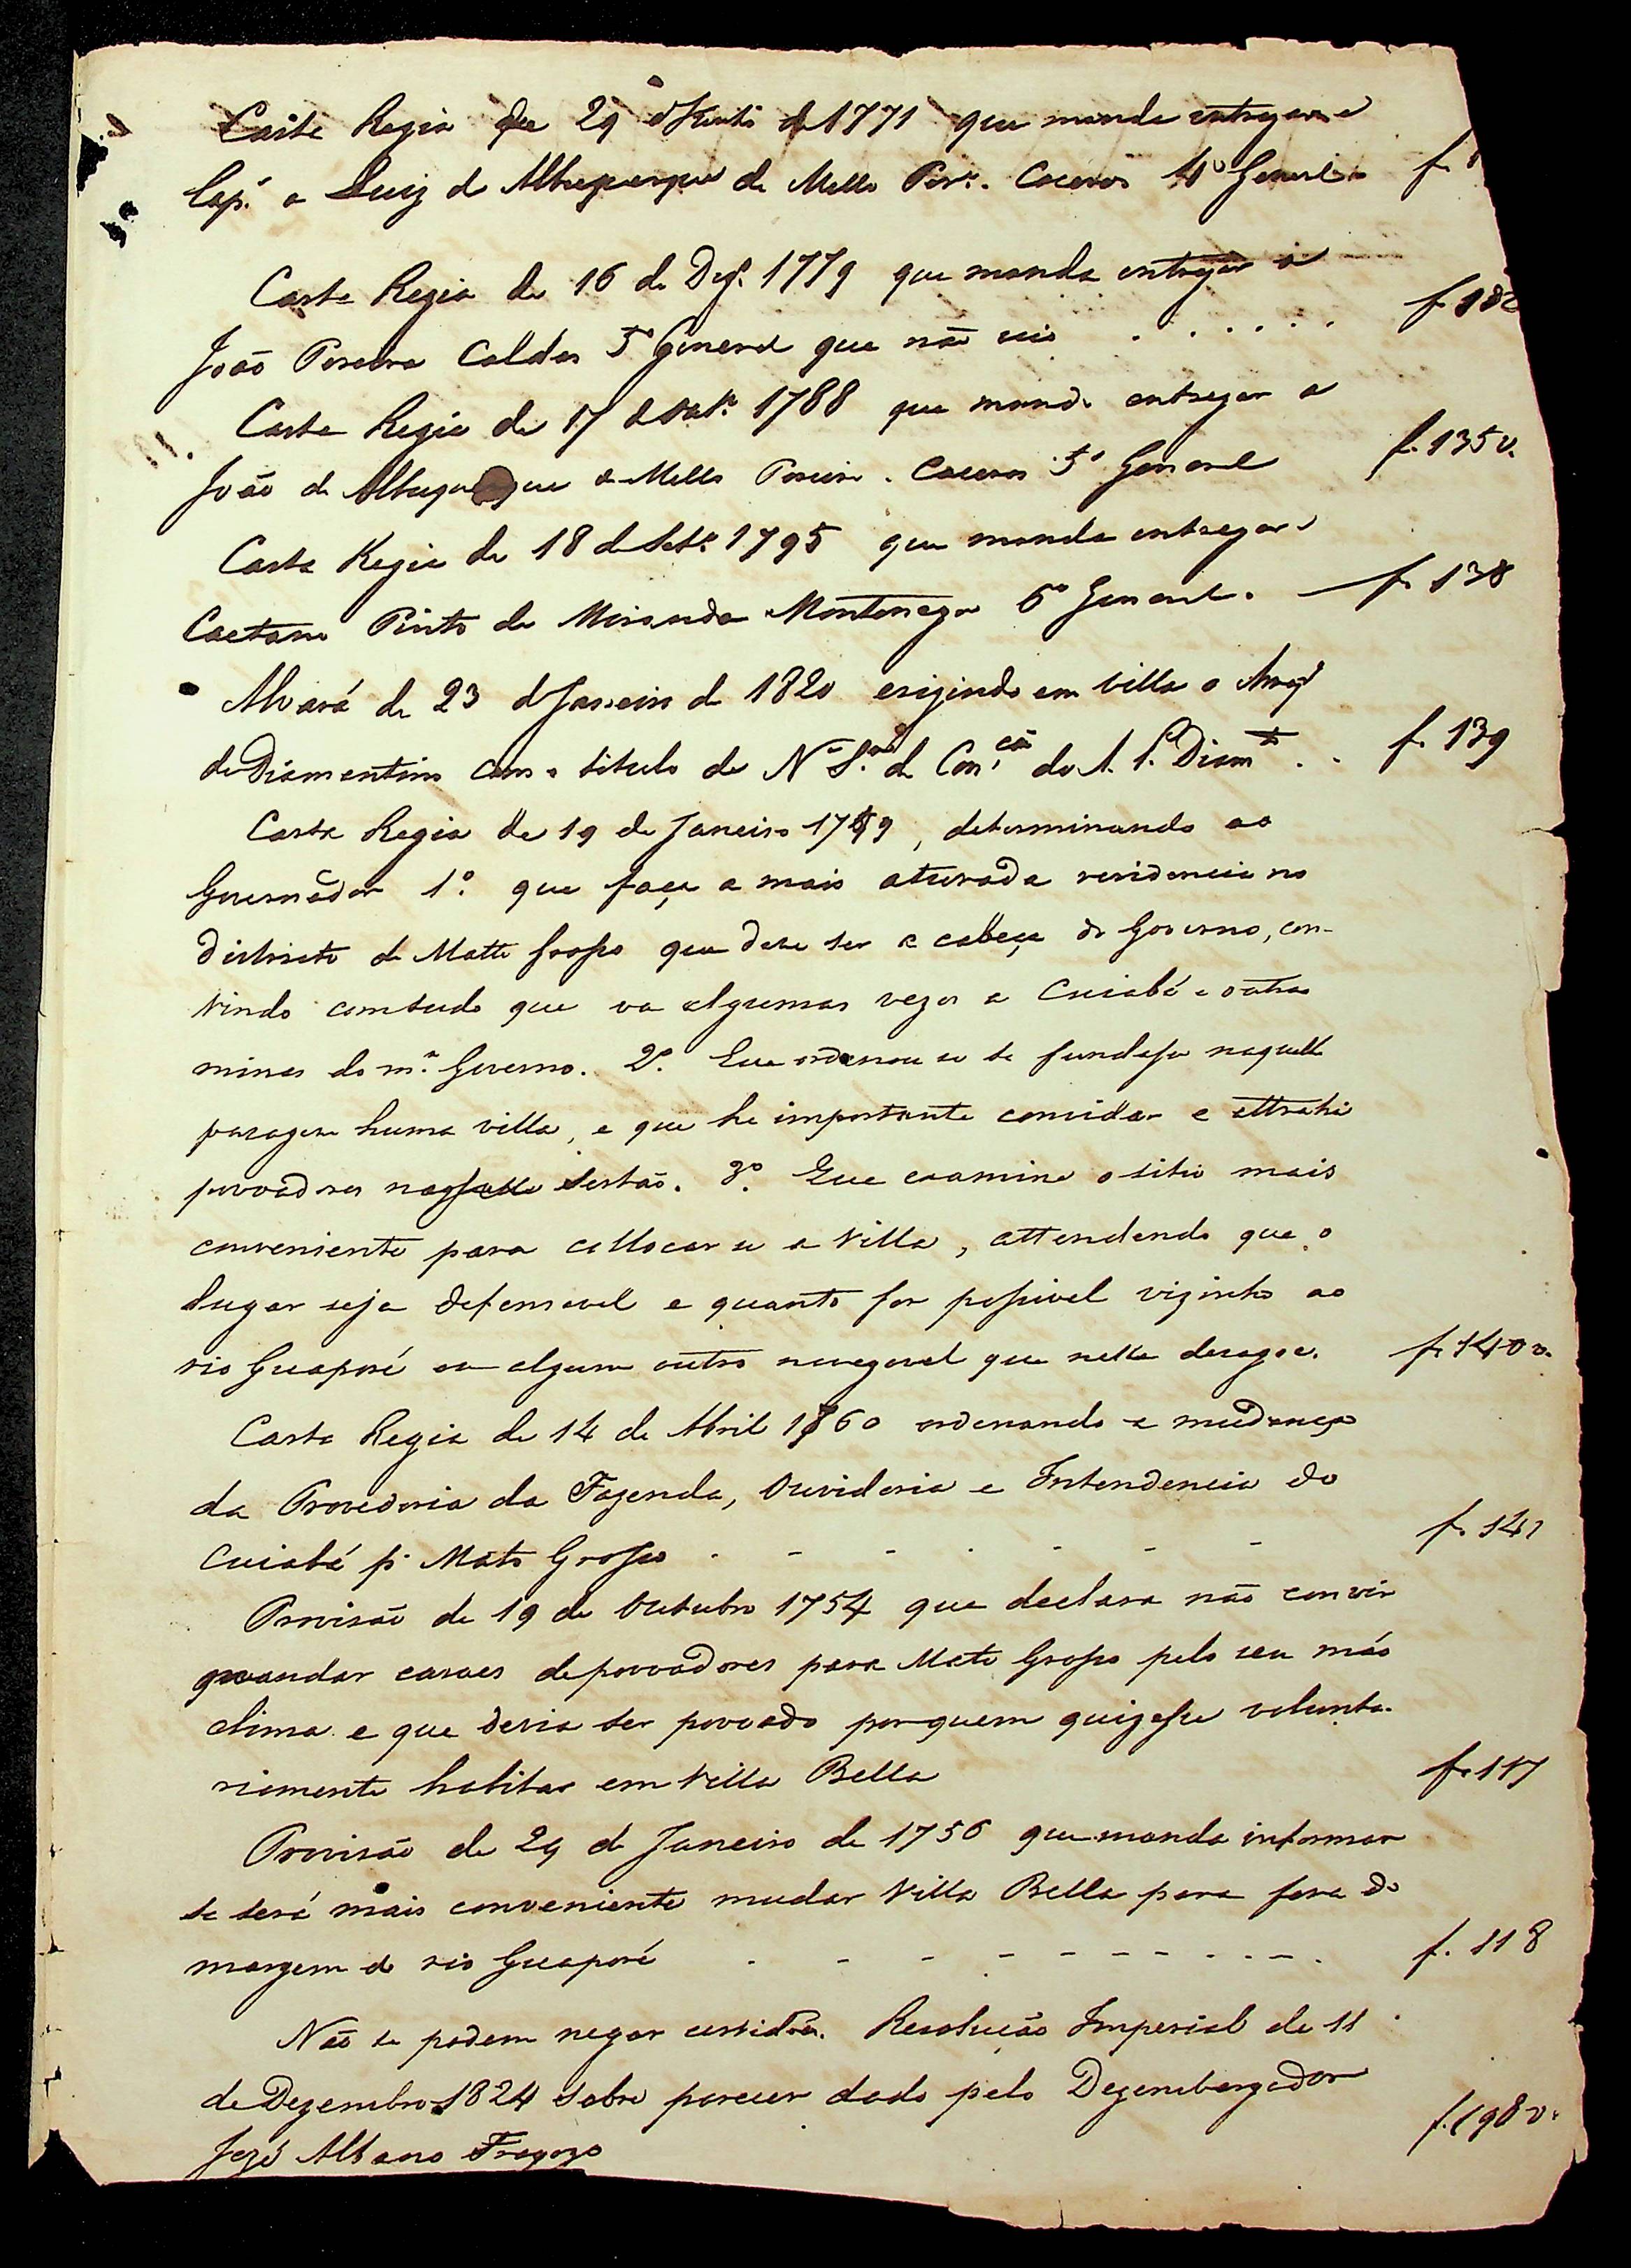 Carta Regia de 29 d'Junho de 1771 que manda entregar a
Cap.ª a Luiz d Albuquerque de Mello Per.ª Caceres 4º General f.
Carta Regia de 16 de Dez.º 1779 que manda entregar a
João Pereira Caldas 5º General que não veio . . . . . . f 132
Carta Regia de 17 de Set.º 1788 que manda entregar a
João de Albuquerque de Mello Pereira Caceres 5º General f. 135 v.
Carta Regia de 18 de Set.º 1795 que manda entregar a
Caetano Pinto de Miranda Montenegro 6º General. f. 138
Alvará de 23 d Janeiro de 1820 erigindo em Villa o Arrayl
de Diamantino com o titulo de N S.ra d Con.ção do A. P. Diam.º . . f. 139
Carta Regia de 19 de Janeiro 1749, determinando ao
Governador 1º. que faça a mais aturada residencia no
districto de Matto Grosso que deve ser a cabeça do Governo, con-
vindo comtudo que va algumas vezes a Cuiabá e outras
minas do m.º Governo. 2º. Que ordenou se se fundasse naquella
paragem huma villa, e que he importante convidar e attrahir
povoadores naquelle sertão. 3º. Que examine o sitio mais
conveniente para collocar se a Villa, attendendo que o
lugar seja defensavel e quanto for possivel vizinho ao
rio Guaporé ou algum outro navegavel que nelle desagoe. f. 140 v.
Carta Regia de 14 de Abril 1760 ordenando a mudança
da Provedoria da Fazenda, Ouvidoria e Intendencia do
Cuiabá pª Mato Grosso . - - . - - - f. 141
Provisão de 19 de Outubro 1754 que declara não convir
mandar casaes de povoadores para Mato Grosso pelo seu máo
clima e que devia ser povoado por quem quizesse volunta-
riamente habitar em Villa Bella f. 117
Provisão de 29 d Janeiro de 1756 que manda informar
se será mais conveniente mudar Villa Bella para fora da
margem do rio Guaporé . - - - - - - . . - . f. 118
Não se podem negar certidões. Resolução Imperial de 11
de Dezembro 1824 sobre parecer dado pelo Dezembargador
José Albano Fragozo f. 198 v.